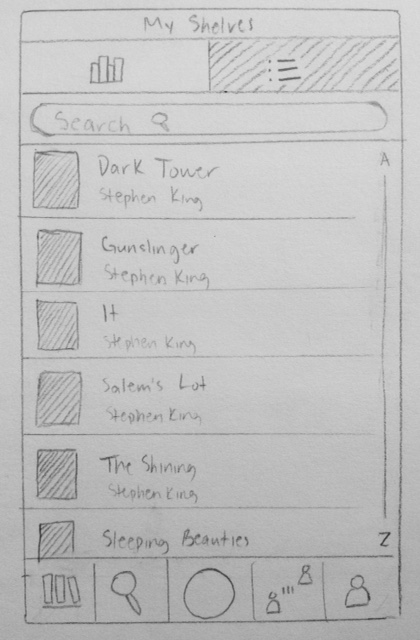 My Shelves
Search
A
Dark Tower
Stephen King
Gunslinger
Stephen King
It
Stephen King
Salem's Lot
Stephen King
The Shining
Stephen King
Sleeping Beauties
Z